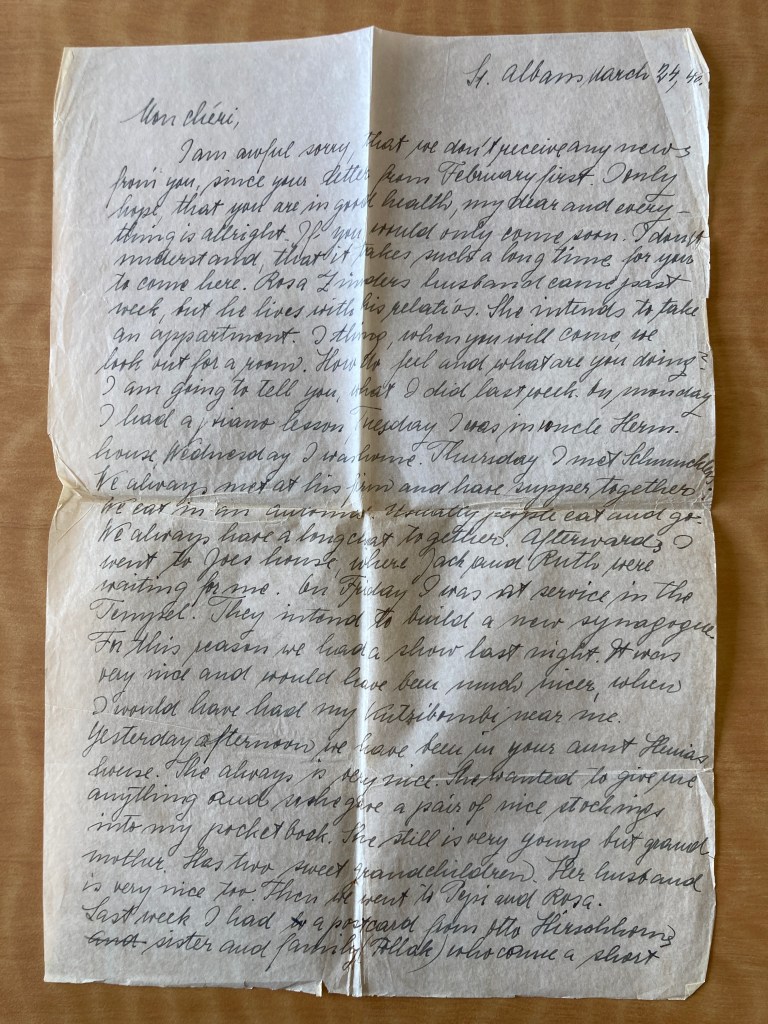 St. Albans, March 24, 40.
Mon chéri,
I am awful sorry, that we don't receive any news
from you, since your letter from February first. I only
hope, that you are in good health, my dear and every-
thing is allright. If you would only come soon. I don't
understand, that it takes such a long time for you
to come here. Rosa Zinders husband came past
week, but he lives with his relativs. She intends to take
an appartment. I thing, when you will come, we
look out for a room. How do feel and what are you doing?
I am going to tell you, what I did last week. On monday
I had a piano lesson, Tuesday I was in uncle Herm.
house, Wednesday I was home. Thursday I met
We always met at his firm and have supper together.
We eat in an automat. Usually people eat and go.
We always have a long chat together. Afterwards I
went to Joes house, where Jack and Ruth were
waiting for me. On Friday I was at service in the
Tempel. They intend to build a new synagogue.
For this reason we had a show last night. It was
very nice and would have been much nicer, when
I would have had my Kutzibombi near me.
Yesterday afternoon we have been in your aunt
house. She always is very nice. She wanted to give me
anything and so she gave a pair of nice stockings
into my pocketbook. She still is very young but grand
mother. Has two sweet grandchildren. Her husband
is very nice too. Then we went to and Rosa.
Last week I had a postcard from Otto Hirschhorns
and sister and family (Pollak) who came a short